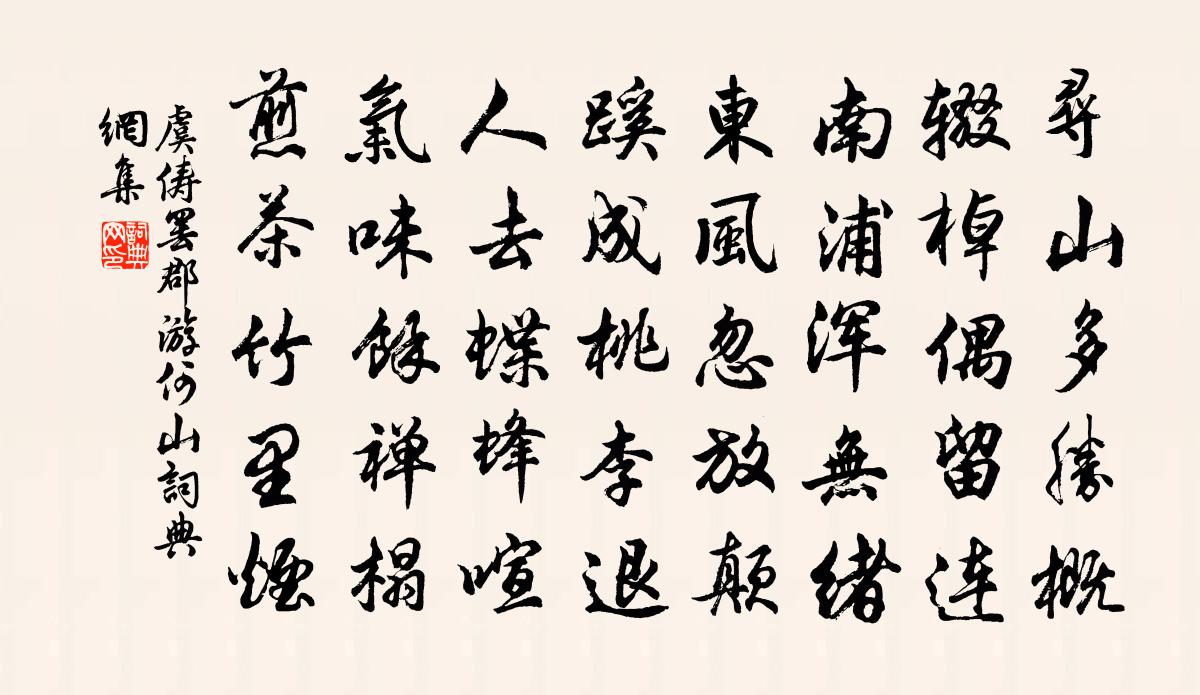 尋山多勝概
辍棹偶留連
南浦浑無緒
東風忽放颠
蹊成桃李退
人去蝶蜂喧
氣味餘禅榻
煎茶竹里煙
虞俦罢郡游何山詞典
網集
詞典網印